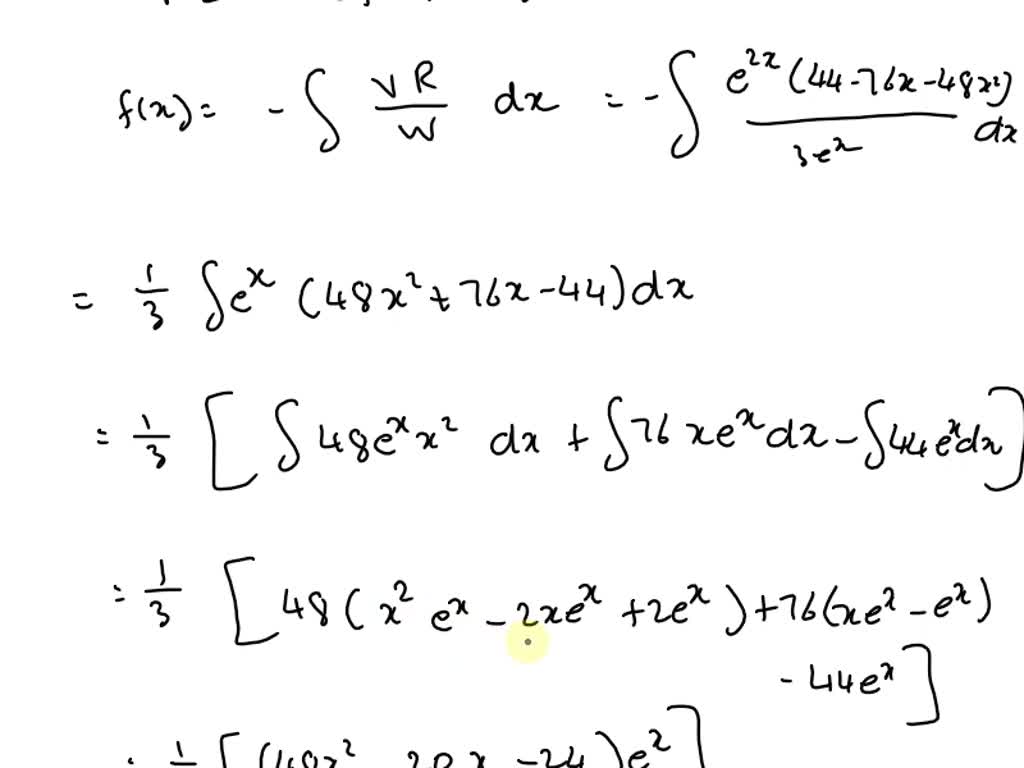 f(x) = - ∫ VR/W dx = - ∫ e^{2x} (44-76x-48x²) / 3e^x dx
= 1/3 ∫ e^x (48x² + 76x - 44) dx
= 1/3 [ ∫ 48e^x x² dx + ∫ 76 xe^x dx - ∫ 44 e^x dx ]
= 1/3 [ 48 ( x² e^x - 2xe^x + 2e^x ) + 76 (xe^x - e^x)
- 44e^x ]